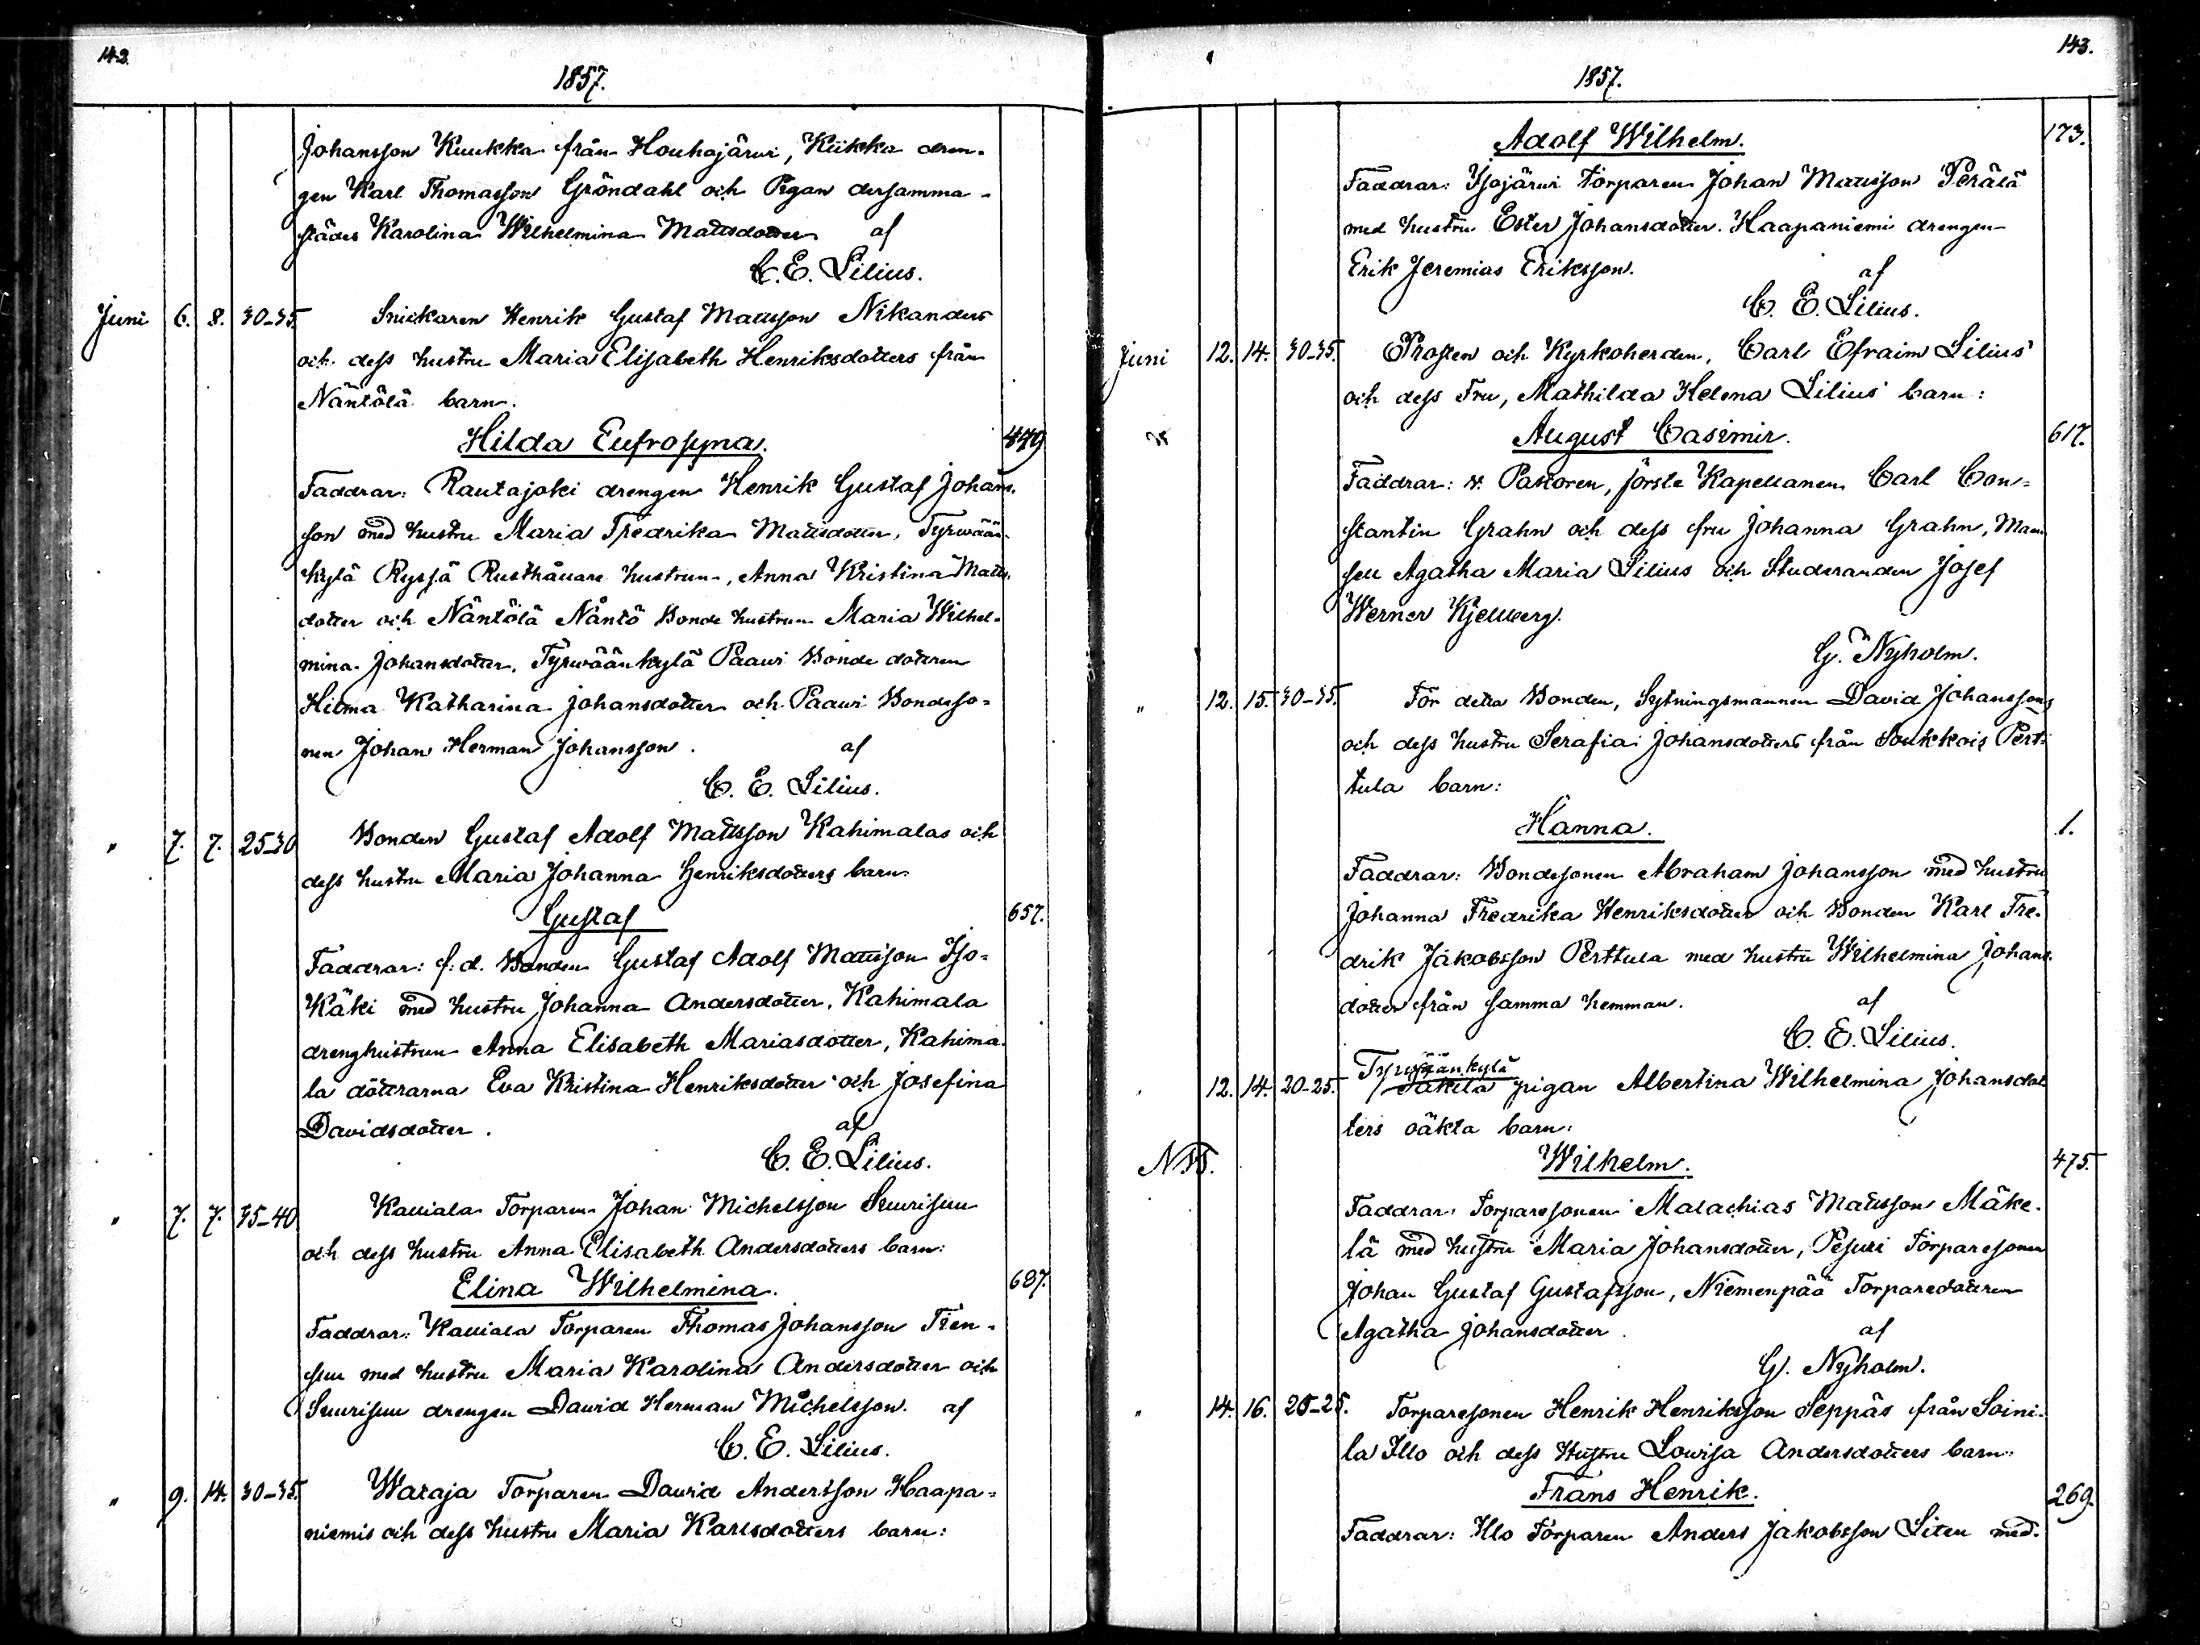 142.
1857.
Johansson Kuukka från Houhajärwi, Kiikka dren-
gen Karl Thomasson Gröndahl och Pigan dersamma-
städes Karolina Wilhelmina Mattsdotter af
C. E. Lilius.
Juni 6. 8. 30-35. Snickaren Henrik Gustaf Mattsson Nikanders
och dess hustru Maria Elisabeth Henriksdotters från
Näntölä barn.
Hilda Eufrosyna. 449
Faddrar: Rautajoki drengen Henrik Gustaf Johans-
son med hustru Maria Fredrika Mattsdotter, Tyrwään-
kylä Ryssä Rusthållare hustrun, Anna Kristina Matts-
dotter och Näntölä Näntö Bonde hustrun Maria Wilhel-
mina Johansdotter, Tyrwäänkylä Paawi Bonde dottren
Hilma Katharina Johansdotter och Paawi Bondeso-
nen Johan Herman Johansson. af
C. E. Lilius.
" 7. 7. 25-30 Bonden Gustaf Adolf Mattsson Kahimalas och
dess hustru Maria Johanna Henriksdotters barn
Gustaf 657.
Faddrar: f. d. Bonden Gustaf Adolf Mattsson Iso-
Käki med hustru Johanna Andersdotter, Kahimala
drenghustrun Anna Elisabeth Mariasdotter, Kahima-
la döttrarna Eva Kristina Henriksdotter och Josefina
Davidsdotter. af
C. E. Lilius.
" 7. 7. 35-40 Kauiala Torparen Johan Michelsson Suurisuu
och dess hustru Anna Elisabeth Andersdotters barn:
Elina Wilhelmina. 687.
Faddrar: Kauiala Torparen Thomas Johansson Tien-
suu med hustru Maria Karolina Andersdotter och
Suurisuu drengen David Herman Michelsson. af
C. E. Lilius.
" 9. 14. 30-35. Wataja Torparen David Andersson Haapa-
niemis och dess hustru Maria Karlsdotters barn:
143.
1857.
Adolf Wilhelm. 173.
Faddrar: Isojärwi torparen Johan Mattsson Perälä
med hustru Ester Johansdotter. Haapaniemi drengen
Erik Jeremias Eriksson. af
C. E. Lilius.
Juni 12. 14. 30-35. Prosten och Kyrkoherden, Carl Efraim Lilius'
och dess Fru, Mathilda Helena Lilius' barn:
August Casimir. 617.
Faddrar: v. Pastoren, förste Kapellanen Carl Con-
stantin Grahn och dess fru Johanna Grahn, Mam-
sell Agatha Maria Lilius och Studeranden Josef
Werner Kjellberg.
G. Nyholm.
" 12. 15. 30-35. För detta Bonden, Sytningsmannen David Johanssons
och dess hustru Serafia Johansdotters från Soukkois Pert-
tula barn:
Hanna. 1.
Faddrar: Bondesonen Abraham Johansson med hustru
Johanna Fredrika Henriksdotter och Bonden Karl Fre-
drik Jakobsson Perttula med hustru Wilhelmina Johans-
dotter från samma hemman. af
C. E. Lilius.
Tyrwäänkylä
12. 14. 20-25. pigan Albertina Wilhelmina Johansdot-
ters oäkta barn:
NB. Wilhelm. 475.
Faddrar: Torparesonen Malachias Mattsson Mäke-
lä med hustru Maria Johansdotter, Pesuri Torparesonen
Johan Gustaf Gustafsson, Niemenpää Torparedottren
Agatha Johansdotter. af
G. Nyholm.
" 14. 16. 20-25. Torparesonen Henrik Henriksson Seppäs från Soini-
la Illo och dess Hustru Lowisa Andersdotters barn:
Frans Henrik. 269.
Faddrar: Illo Torparen Anders Jakobsson Liten med